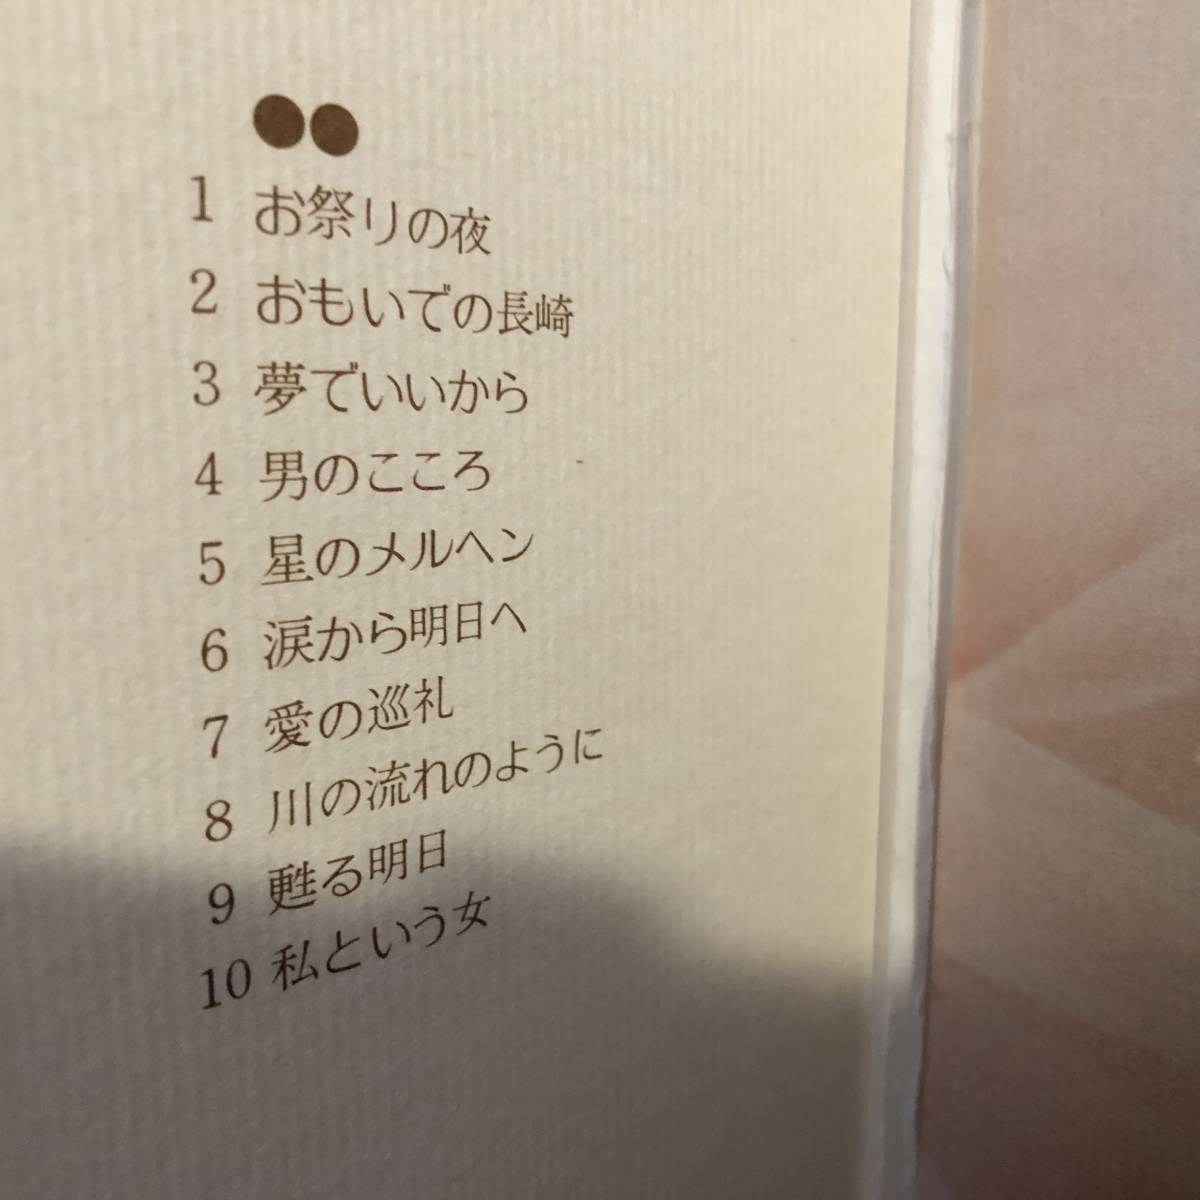 1 お祭りの夜
2 おもいでの長崎
3 夢でいいから
4 男のこころ
5 星のメルヘン
6 涙から明日へ
7 愛の巡礼
8 川の流れのように
9 甦る明日
10 私という女